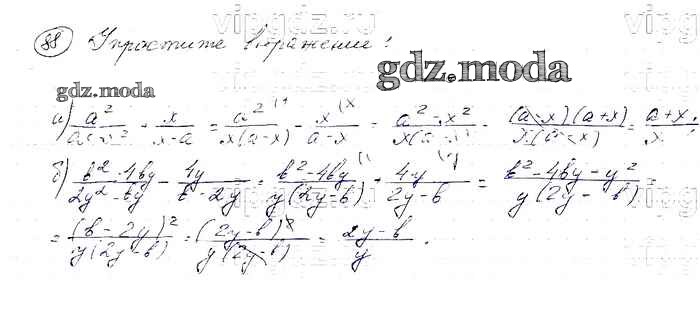 88 Упростите выражение:
gdz.moda
gdz.moda
а) a²/(ax-x²) + x/(x-a) = a²⁽¹/(x(a-x)) - x⁽ˣ/(a-x) = (a²-x²)/(x(a-x)) = (a-x)(a+x)/(x(a-x)) = (a+x)/x.
б) (b²-4by)/(2y²-by) - 4y/(b-2y) = (b²-4by)⁽¹/(y(2y-b)) + 4y⁽ʸ/(2y-b) = (b²-4by-y²)/(y(2y-b)) =
= (b-2y)²/(y(2y-b)) = (2y-b)²/(y(2y-b)) = (2y-b)/y.